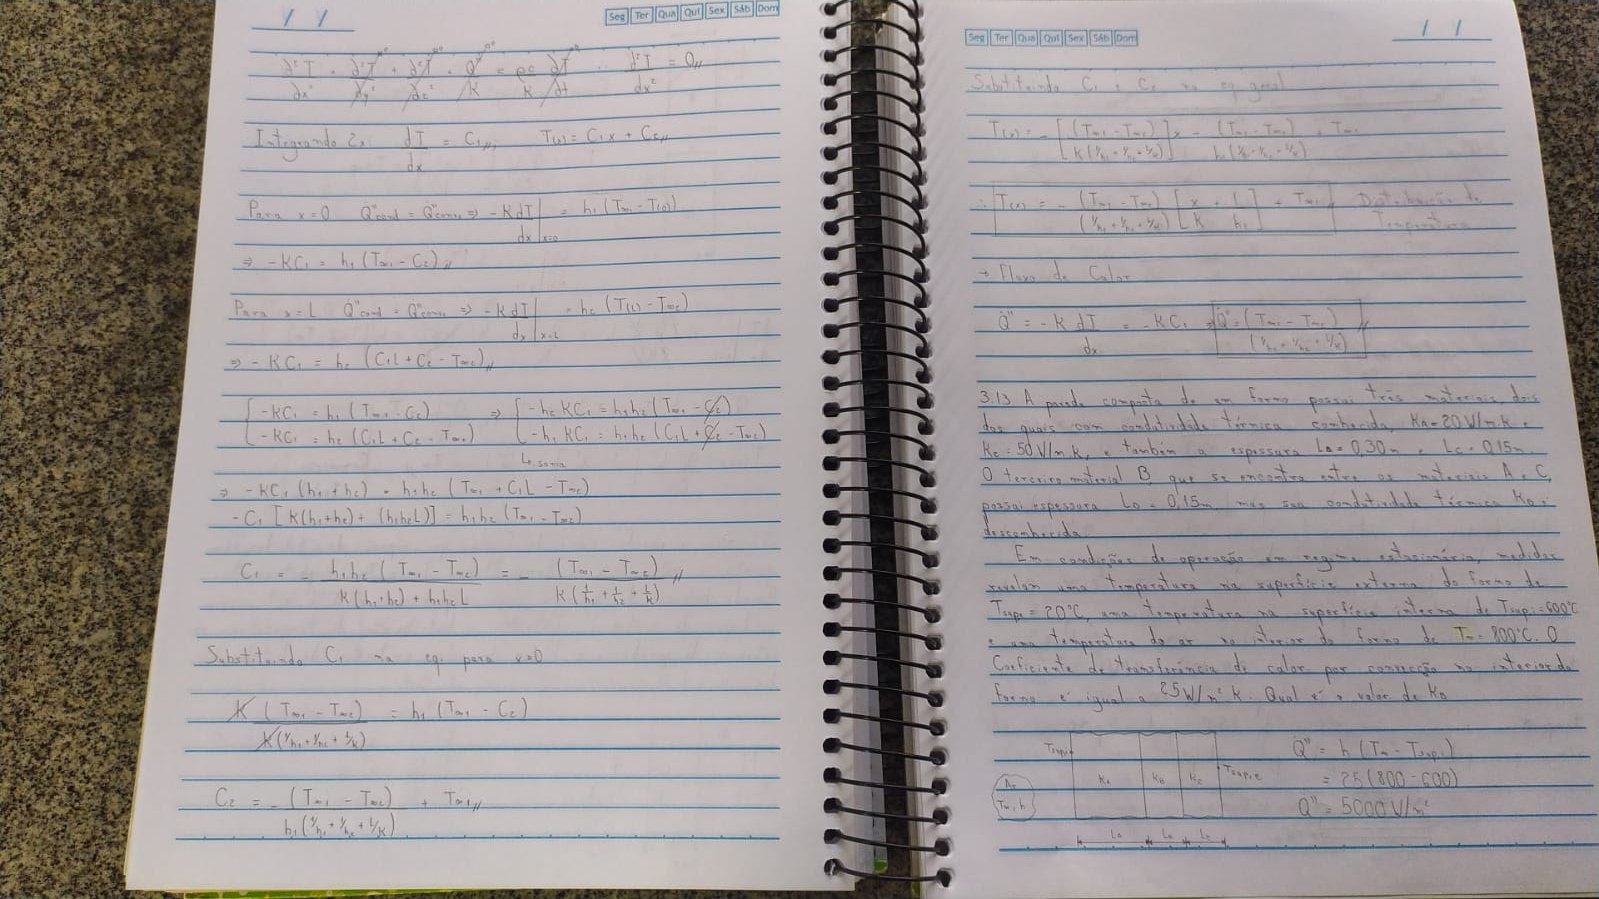 Seg Ter Qua Qui Sex Sáb Dom
∂²T/∂x² + ∂²T/∂y² + ∂²T/∂z² + Q/K = ρc/K ∂T/∂t ∴ d²T/dx² = 0,,
Integrando 2x: dT/dx = C₁,, T(x) = C₁x + C₂,,
Para x=0 Q"cond = Q"conv ⇒ -K dT/dx |x=0 = h₁(T∞₁ - T(0))
⇒ -KC₁ = h₁(T∞₁ - C₂),,
Para x=L Q"cond = Q"conv ⇒ -K dT/dx |x=L = h₂(T(L) - T∞₂)
⇒ -KC₁ = h₂(C₁L + C₂ - T∞₂),,
{ -KC₁ = h₁(T∞₁ - C₂) ⇒ { -h₂KC₁ = h₁h₂(T∞₁ - C₂)
-KC₁ = h₂(C₁L + C₂ - T∞₂) -h₁KC₁ = h₁h₂(C₁L + C₂ - T∞₂)
↳ soma
⇒ -KC₁(h₁+h₂) = h₁h₂(T∞₁ + C₁L - T∞₂)
-C₁[K(h₁+h₂) + (h₁h₂L)] = h₁h₂(T∞₁ - T∞₂)
C₁ = - h₁h₂(T∞₁ - T∞₂) / K(h₁+h₂) + h₁h₂L = - (T∞₁ - T∞₂) / K(1/h₁ + 1/h₂ + L/K),,
Substituindo C₁ na eq. para x=0
K(T∞₁ - T∞₂) / K(1/h₁ + 1/h₂ + L/K) = h₁(T∞₁ - C₂)
C₂ = - (T∞₁ - T∞₂) / h₁(1/h₁ + 1/h₂ + L/K) + T∞₁,,
Seg Ter Qua Qui Sex Sáb Dom
Substituindo C₁ e C₂ na eq geral
T(x) = - [(T∞₁ - T∞₂) / K(1/h₁ + 1/h₂ + L/K)] x - (T∞₁ - T∞₂) / h₁(1/h₁ + 1/h₂ + L/K) + T∞₁
∴ T(x) = - (T∞₁ - T∞₂) / (1/h₁ + 1/h₂ + L/K) [x/K + 1/h₁] + T∞₁ Distribuição de
Temperatura
→ Fluxo de Calor
Q" = -K dT/dx = -KC₁ ⇒ Q" = (T∞₁ - T∞₂) / (1/h₁ + 1/h₂ + L/K),,
3.13 A parede composta de um forno possui três materiais, dois
dos quais com condutividade térmica conhecida, KA = 20 W/m.K e
Kc = 50 W/m.K, e também a espessura LA = 0,30m e Lc = 0,15m.
O terceiro material B, que se encontra entre os materiais A e C,
possui espessura LB = 0,15m, mas sua condutividade térmica KB é
desconhecida.
Em condições de operação em regime estacionário, medidas
revelam uma temperatura na superfície externa do forno de
Tsup,e = 20°C, uma temperatura na superfície interna de Tsup,i = 600°C
e uma temperatura do ar no interior do forno de T∞ = 800°C. O
Coeficiente de transferência de calor por convecção no interior do
forno é igual a 25 W/m².K. Qual é o valor de KB
Tsup,i KA KB Kc Tsup,e
Ar
T∞, h
LA LB Lc
Q" = h(T∞ - Tsup,i)
= 25(800 - 600)
Q" = 5000 W/m²